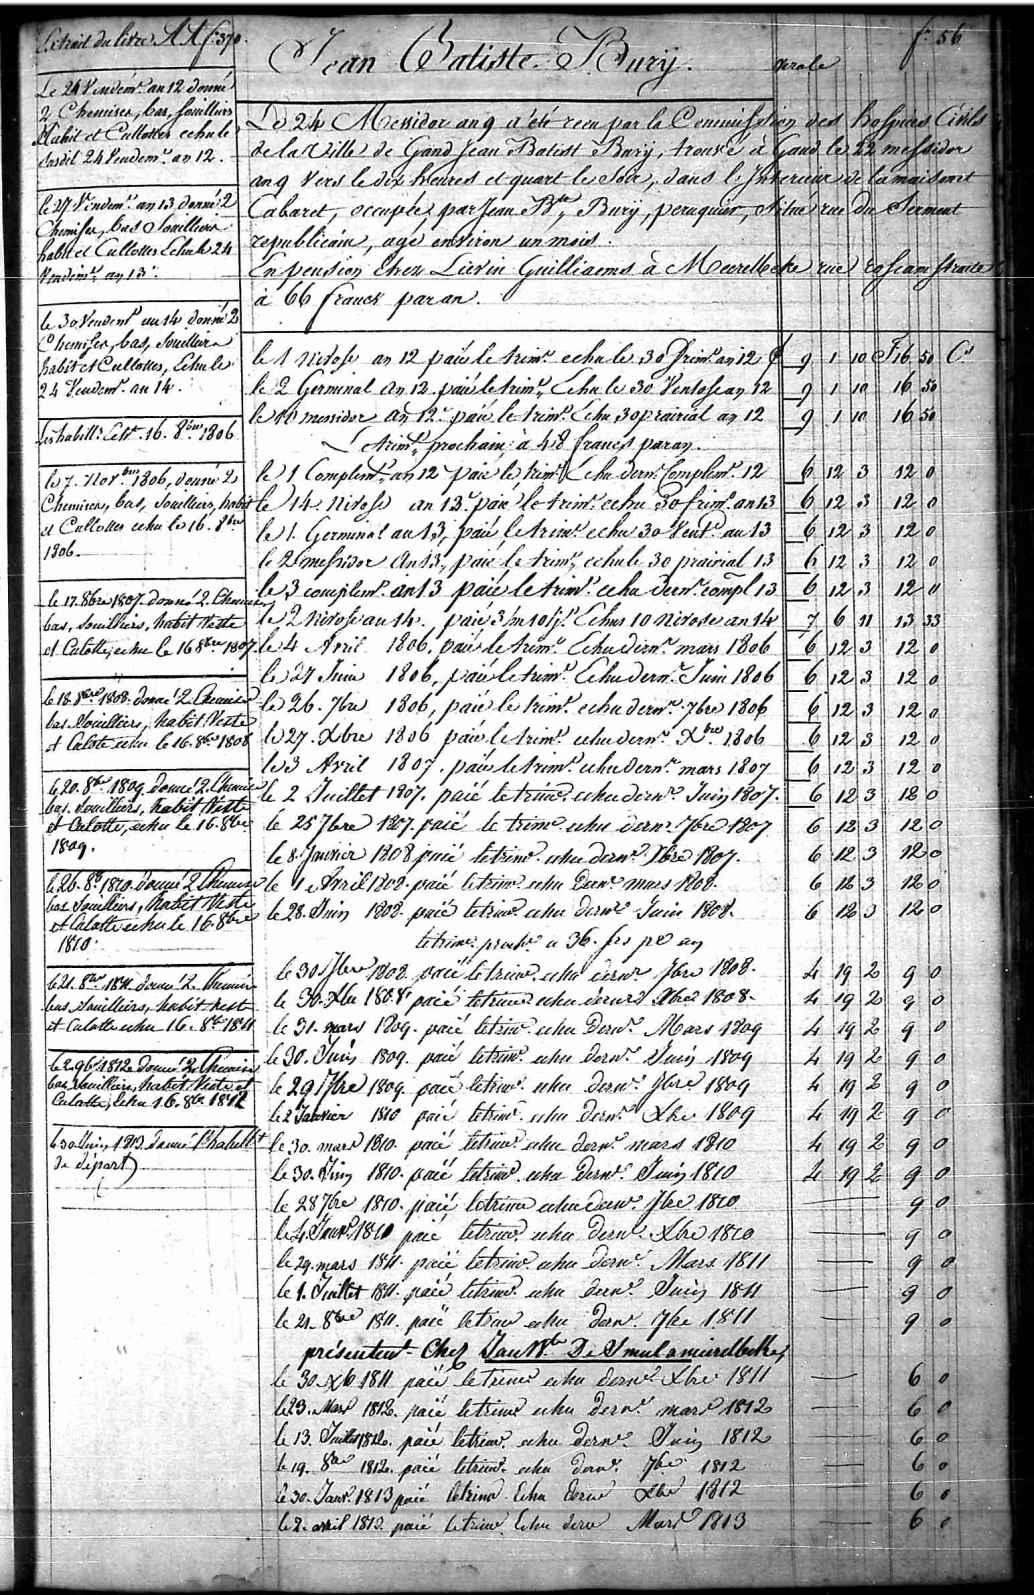 Extrait du livre AA f: 370.
Jean Batiste Burij.
verole
f: 56
Le 24 Vendem.re an 12 donné
2 Chemises, bas, souilliers
Habit et Cullottes echu le
dusdit 24 Vendem.re an 12.
le 27 Vendem.re an 13 donné 2
Chemises, bas Souilliers
habit et Cullottes Echu le 24
Vendem.re an 13.
le 30 Vendem.re an 14 donné 2
Chemises, bas, Souilliers
habit et Cullottes, Echu le
24 Vendem.re an 14.
16. 8bre 1806
le 7. Novbre 1806, donné 2
Chemises, bas, Souilliers, habit
et Cullottes echu le 16. 8bre
1806.
le 17. 8bre 1807. donné 2. Chemises
bas, souilliers, habit Veste
et Culotte, echu le 16 8bre 1807
le 18. 8bre 1808. donné 2 Chemises
bas. Souilliers, habit Veste
et Culotte echu le 16. 8bre 1808
le 20. 8bre 1809 donné 2. Chemises
bas, souilliers, habit Veste
et Culotte, echu le 16. 8bre
1809.
le 26. 8bre 1810. donné 2 Chemises
bas Souilliers, habit Veste
et Culotte echu le 16. 8bre
1810.
le 21. 8bre 1811 donné 2 Chemises
bas Souilliers, habit Veste
et Culotte echu 16. 8bre 1811
1812 donné 2 Chemises
bas, souilliers, habit Veste et
Culotte, echu 16. 8bre 1812
le 30 Juin, 1813 donné l'habill.t
de départ
Le 24 Messidor an 9 a été recu par la Commission des hospices Civils
de la Ville de Gand Jean Batist Burij, trouvé à Gand le 22 messidor
an 9 vers le dix heures et quart le Soir, dans l'Interieur de la maison et
Cabaret, occupée par Jean Bte Burij, peruquier, Situé rue du Serment
republicain, agé environ un mois.
En pension chez Lievin Guilliaems à Meerelbeke rue
à 66 francs par an.
le 1 Nivose an 12 paié le trim.e echu le 30 frim.e an 12 £ 9 1 10 f 16 50 Cs
le 2 Germinal an 12. paié le trim.e Echu le 30 Ventose an 12 9 1 10 16 50
le 11 messidor an 12. paié le trim.e Echu 30 prairial an 12 9 1 10 16 50
Le trim.e prochain à 48 francs par an.
le 1 Complem.re an 12 paié le trim.e Echu dern.r Complem.re 12 6 12 3 12 0
le 14. Nivose an 13. paié le trim.e echu 30 frim.e an 13 6 12 3 12 0
le 1. Germinal an 13, paié le trim.e echu 30 Vent.e an 13 6 12 3 12 0
le 2 messidor an 13, paié le trim.e echu le 30 prairial 13 6 12 3 12 0
le 3 complem.re an 13 paié le trim.e echu dern.r compl 13 6 12 3 12 0
le 2 Nivose an 14. paié 3 m 10 js Echus 10 Nivose an 14 7 6 11 13 33
le 4 Avril 1806, paié le trim.e Echu dern.r mars 1806 6 12 3 12 0
le 27 Juin 1806, paié le trim.e Echu dern.r Juin 1806 6 12 3 12 0
le 26. 7bre 1806, paié le trim.e echu dern.r 7bre 1806 6 12 3 12 0
le 27. Xbre 1806 paié le trim.e echu dern.r Xbre 1806 6 12 3 12 0
le 3 Avril 1807. paié le trim.e echu dern.r mars 1807 6 12 3 12 0
le 2 Juillet 1807. paié le trim.e echu dern.r Juin 1807. 6 12 3 12 0
le 25 7bre 1807. paié le trim.e echu dern.r 7bre 1807 6 12 3 12 0
le 8. Janvier 1808 paié le trim.e echu dern.r Xbre 1807. 6 12 3 12 0
le 1 Avril 1808. paié le trim.e echu dern.r mars 1808. 6 12 3 12 0
le 28. Juin 1808. paié le trim.e echu dern.r Juin 1808. 6 12 3 12 0
le trim.e proch.n a 36. frs pr an
le 30 7bre 1808. paié le trim.e echu dern.r 7bre 1808. 4 19 2 9 0
le 30. Xbre 1808. paié le trim.e echu dern.r Xbre 1808. 4 19 2 9 0
le 31. mars 1809. paié le trim.e echu dern.r Mars 1809 4 19 2 9 0
le 30. Juin 1809. paié le trim.e echu dern.r Juin 1809 4 19 2 9 0
le 29 7bre 1809. paié le trim.e echu dern.r 7bre 1809 4 19 2 9 0
le 2 Janvier 1810 paié le trim.e echu dern.r Xbre 1809 4 19 2 9 0
le 30. mars 1810. paié le trim.e echu dern.r mars 1810 4 19 2 9 0
le 30. Juin 1810. paié le trim.e echu dern.r Juin 1810 4 19 2 9 0
le 28 7bre 1810. paié le trim.e echu dern.r 7bre 1810 9 0
le 4. Janv.r 1810 paié le trim.e echu dern.r Xbre 1810 9 0
le 29. mars 1811. paié le trim.e echu dern.r Mars 1811 9 0
le 1. Juillet 1811. paié le trim.e echu dern.r Juin 1811 9 0
le 21. 8bre 1811. paié le trim.e echu dern.r 7bre 1811 9 0
présentent Chez Jan Bte De Smul a meirelbeke,
le 30. Xbre 1811 paié le trim.e echu dern.r Xbre 1811 6 0
le 23. Mars 1812. paié le trim.e echu dern.r mars 1812 6 0
le 13. Juillet 1812. paié le trim.e echu dern.r Juin 1812 6 0
le 19. 8bre 1812. paié le trim.e echu dern.r 7bre 1812 6 0
le 30. Janv.r 1813 paié le trim.e Echu dern.r Xbre 1812 6 0
le 2. avril 1813. paié le trim.e Echu dern.r Mars 1813 6 0